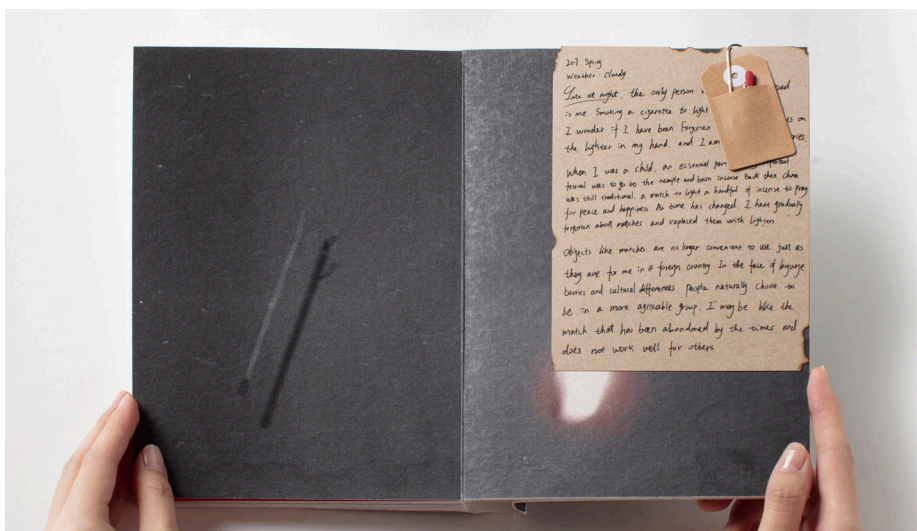 2017 Spring
Weather: Cloudy
Late at night, the only person
is me. Smoking a cigarette to light
I wonder if I have been forgotten
the lighter in my hand, and I am
When I was a child, an essential
festival was to go to the temple and burn incense back then, China
was still traditional, a match to light a handful of incense to pray
for peace and happiness. As time has changed, I have gradually
forgotten about matches and replaced them with lighters.
Objects like matches are no longer convenient to use just as
they are for me in a foreign country. In the face of language
barries and cultural differences people naturally choose to
be in a more agreeable group. I may be like the
match that has been abandoned by the times and
does not work well for others.